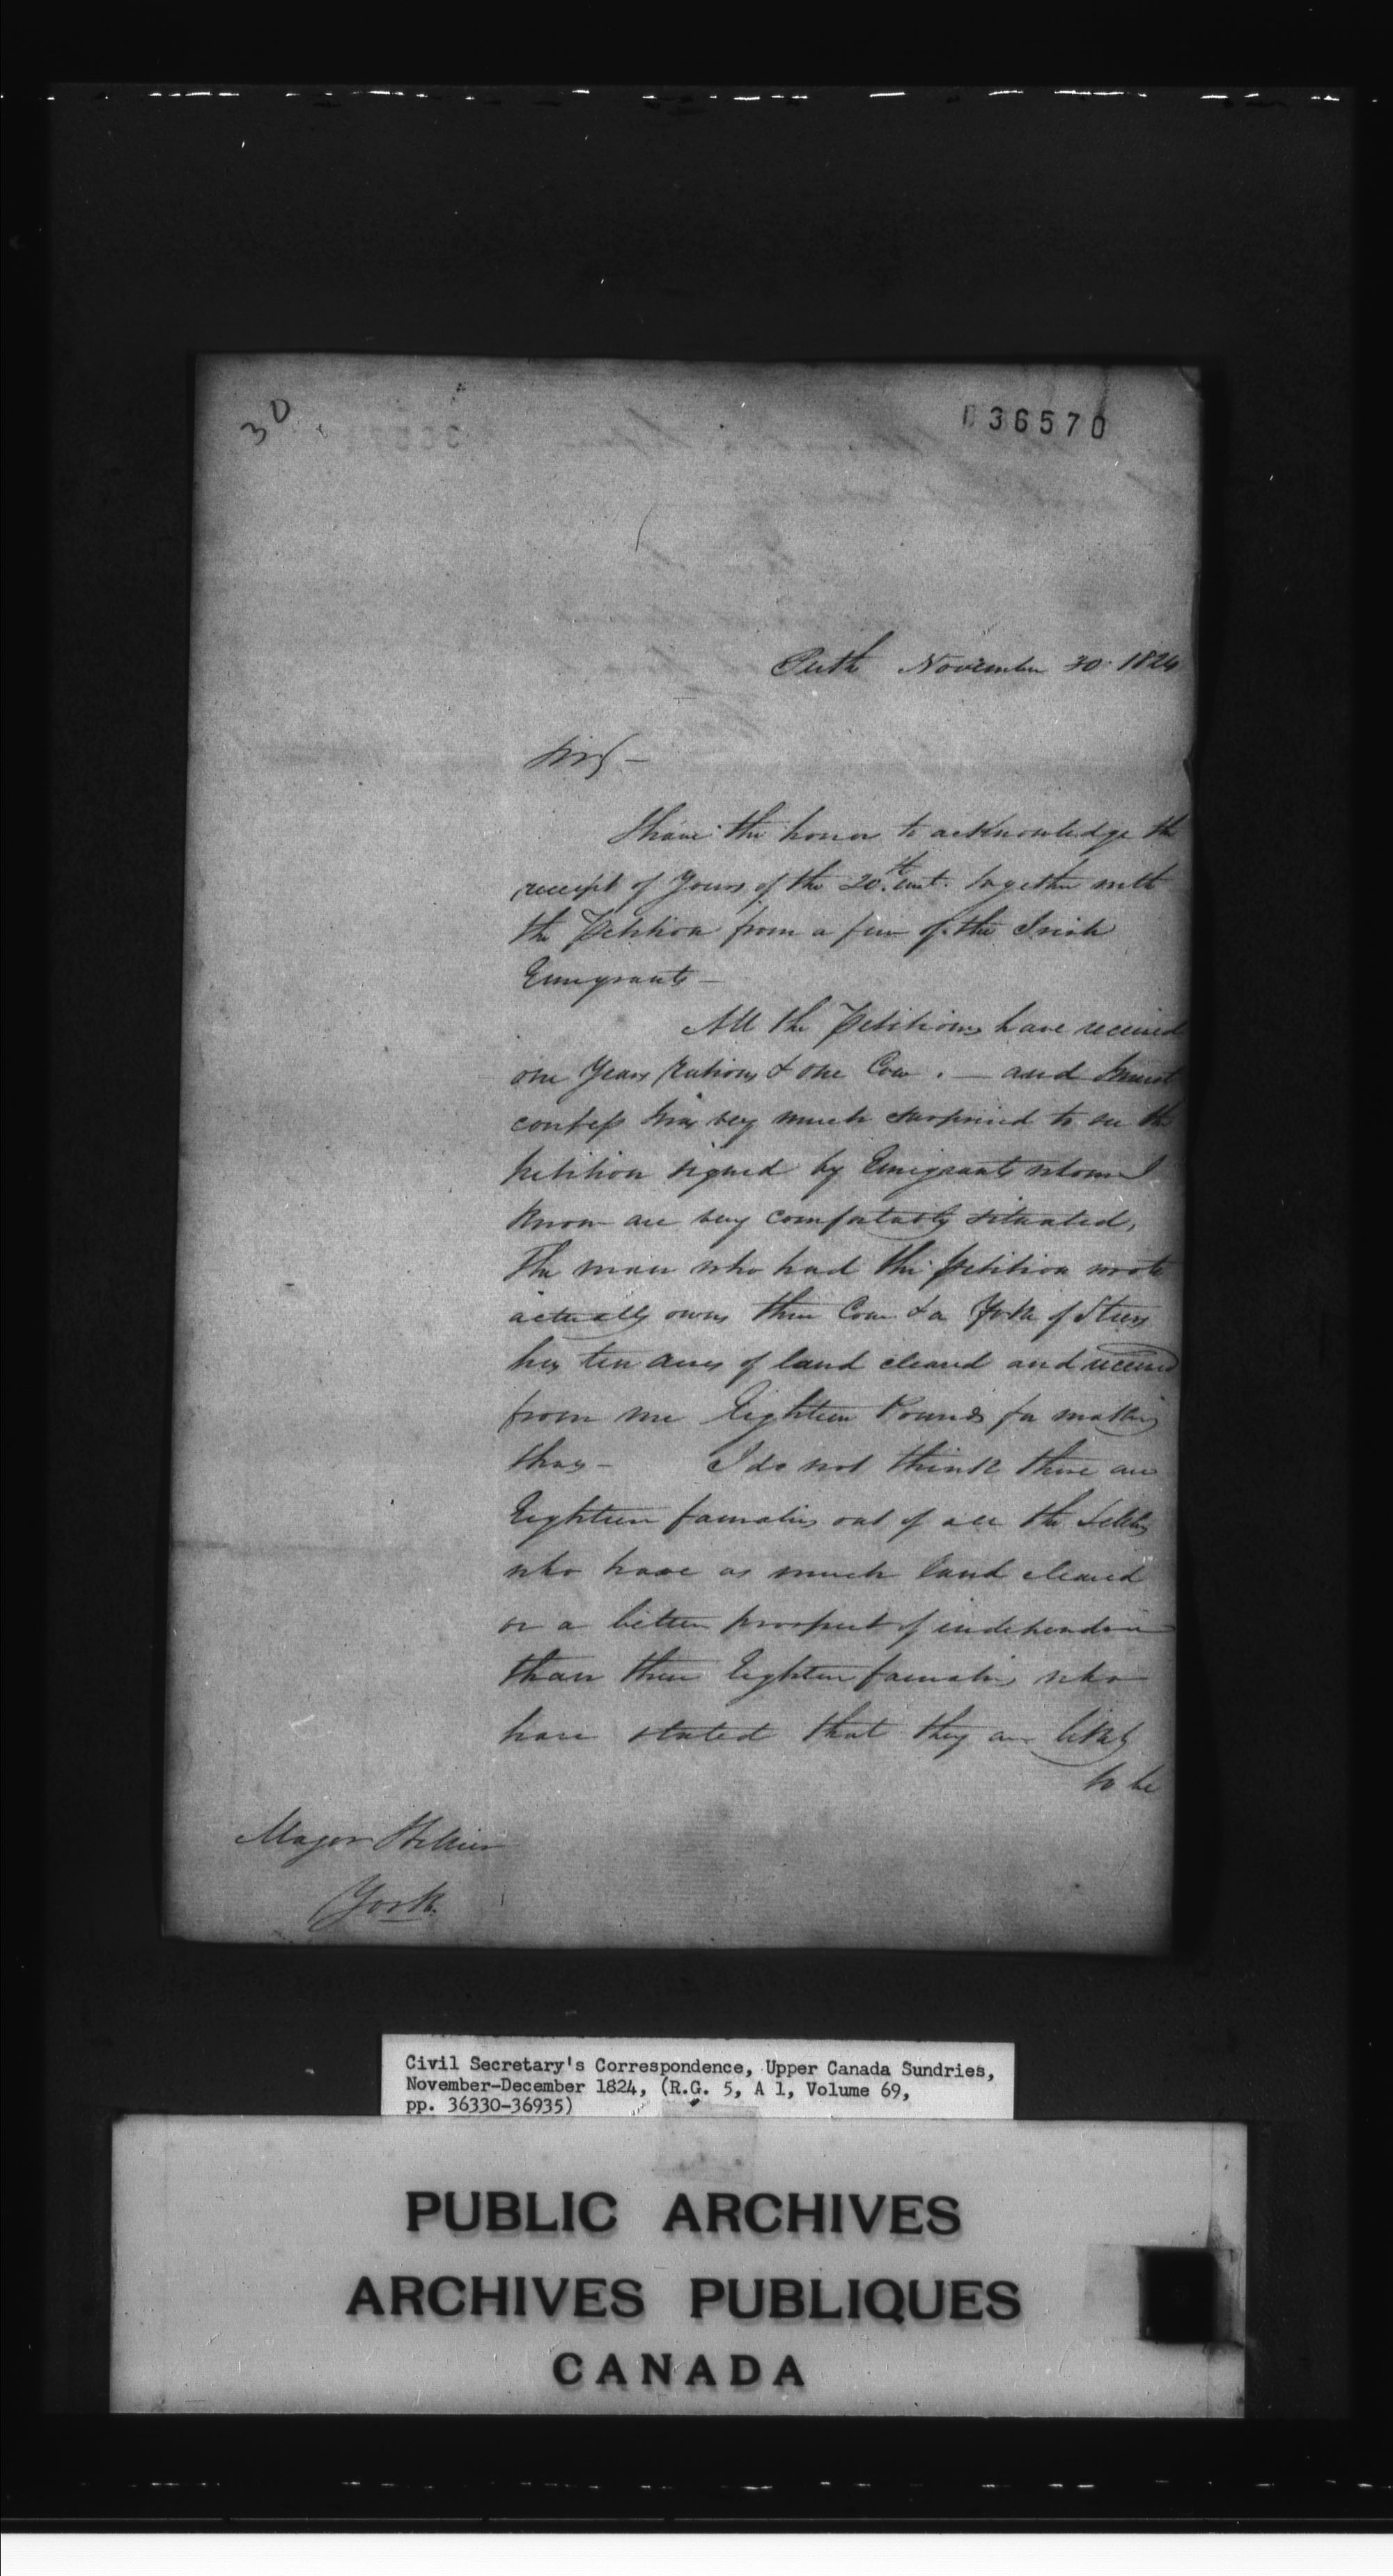 30
36570
Perth November 30 1824
Sir,
I have the honor to acknowledge the
receipt of Yours of the 20th inst. together with
the Petition from a few of the Irish
Emigrants —
All the Petitions have received
one Years Rations & one Cow. — and I must
confess I was very much surprised to see the
petition signed by Emigrants whom I
know are very comfortably situated,
The man who had the petition wrote
actually owns three Cows & a Yoke of Steers
has ten acres of land cleared and received
from me Eighteen Pounds for making
I do not think there are
Eighteen families out of all the Settlers
who have as much land cleared
or a better prospect of independence
than these Eighteen families who
have stated that they are likely
to be
Major Hillier
York.
Civil Secretary's Correspondence, Upper Canada Sundries,
November-December 1824, (R.G. 5, A 1, Volume 69,
pp. 36330-36935)
PUBLIC ARCHIVES
ARCHIVES PUBLIQUES
CANADA